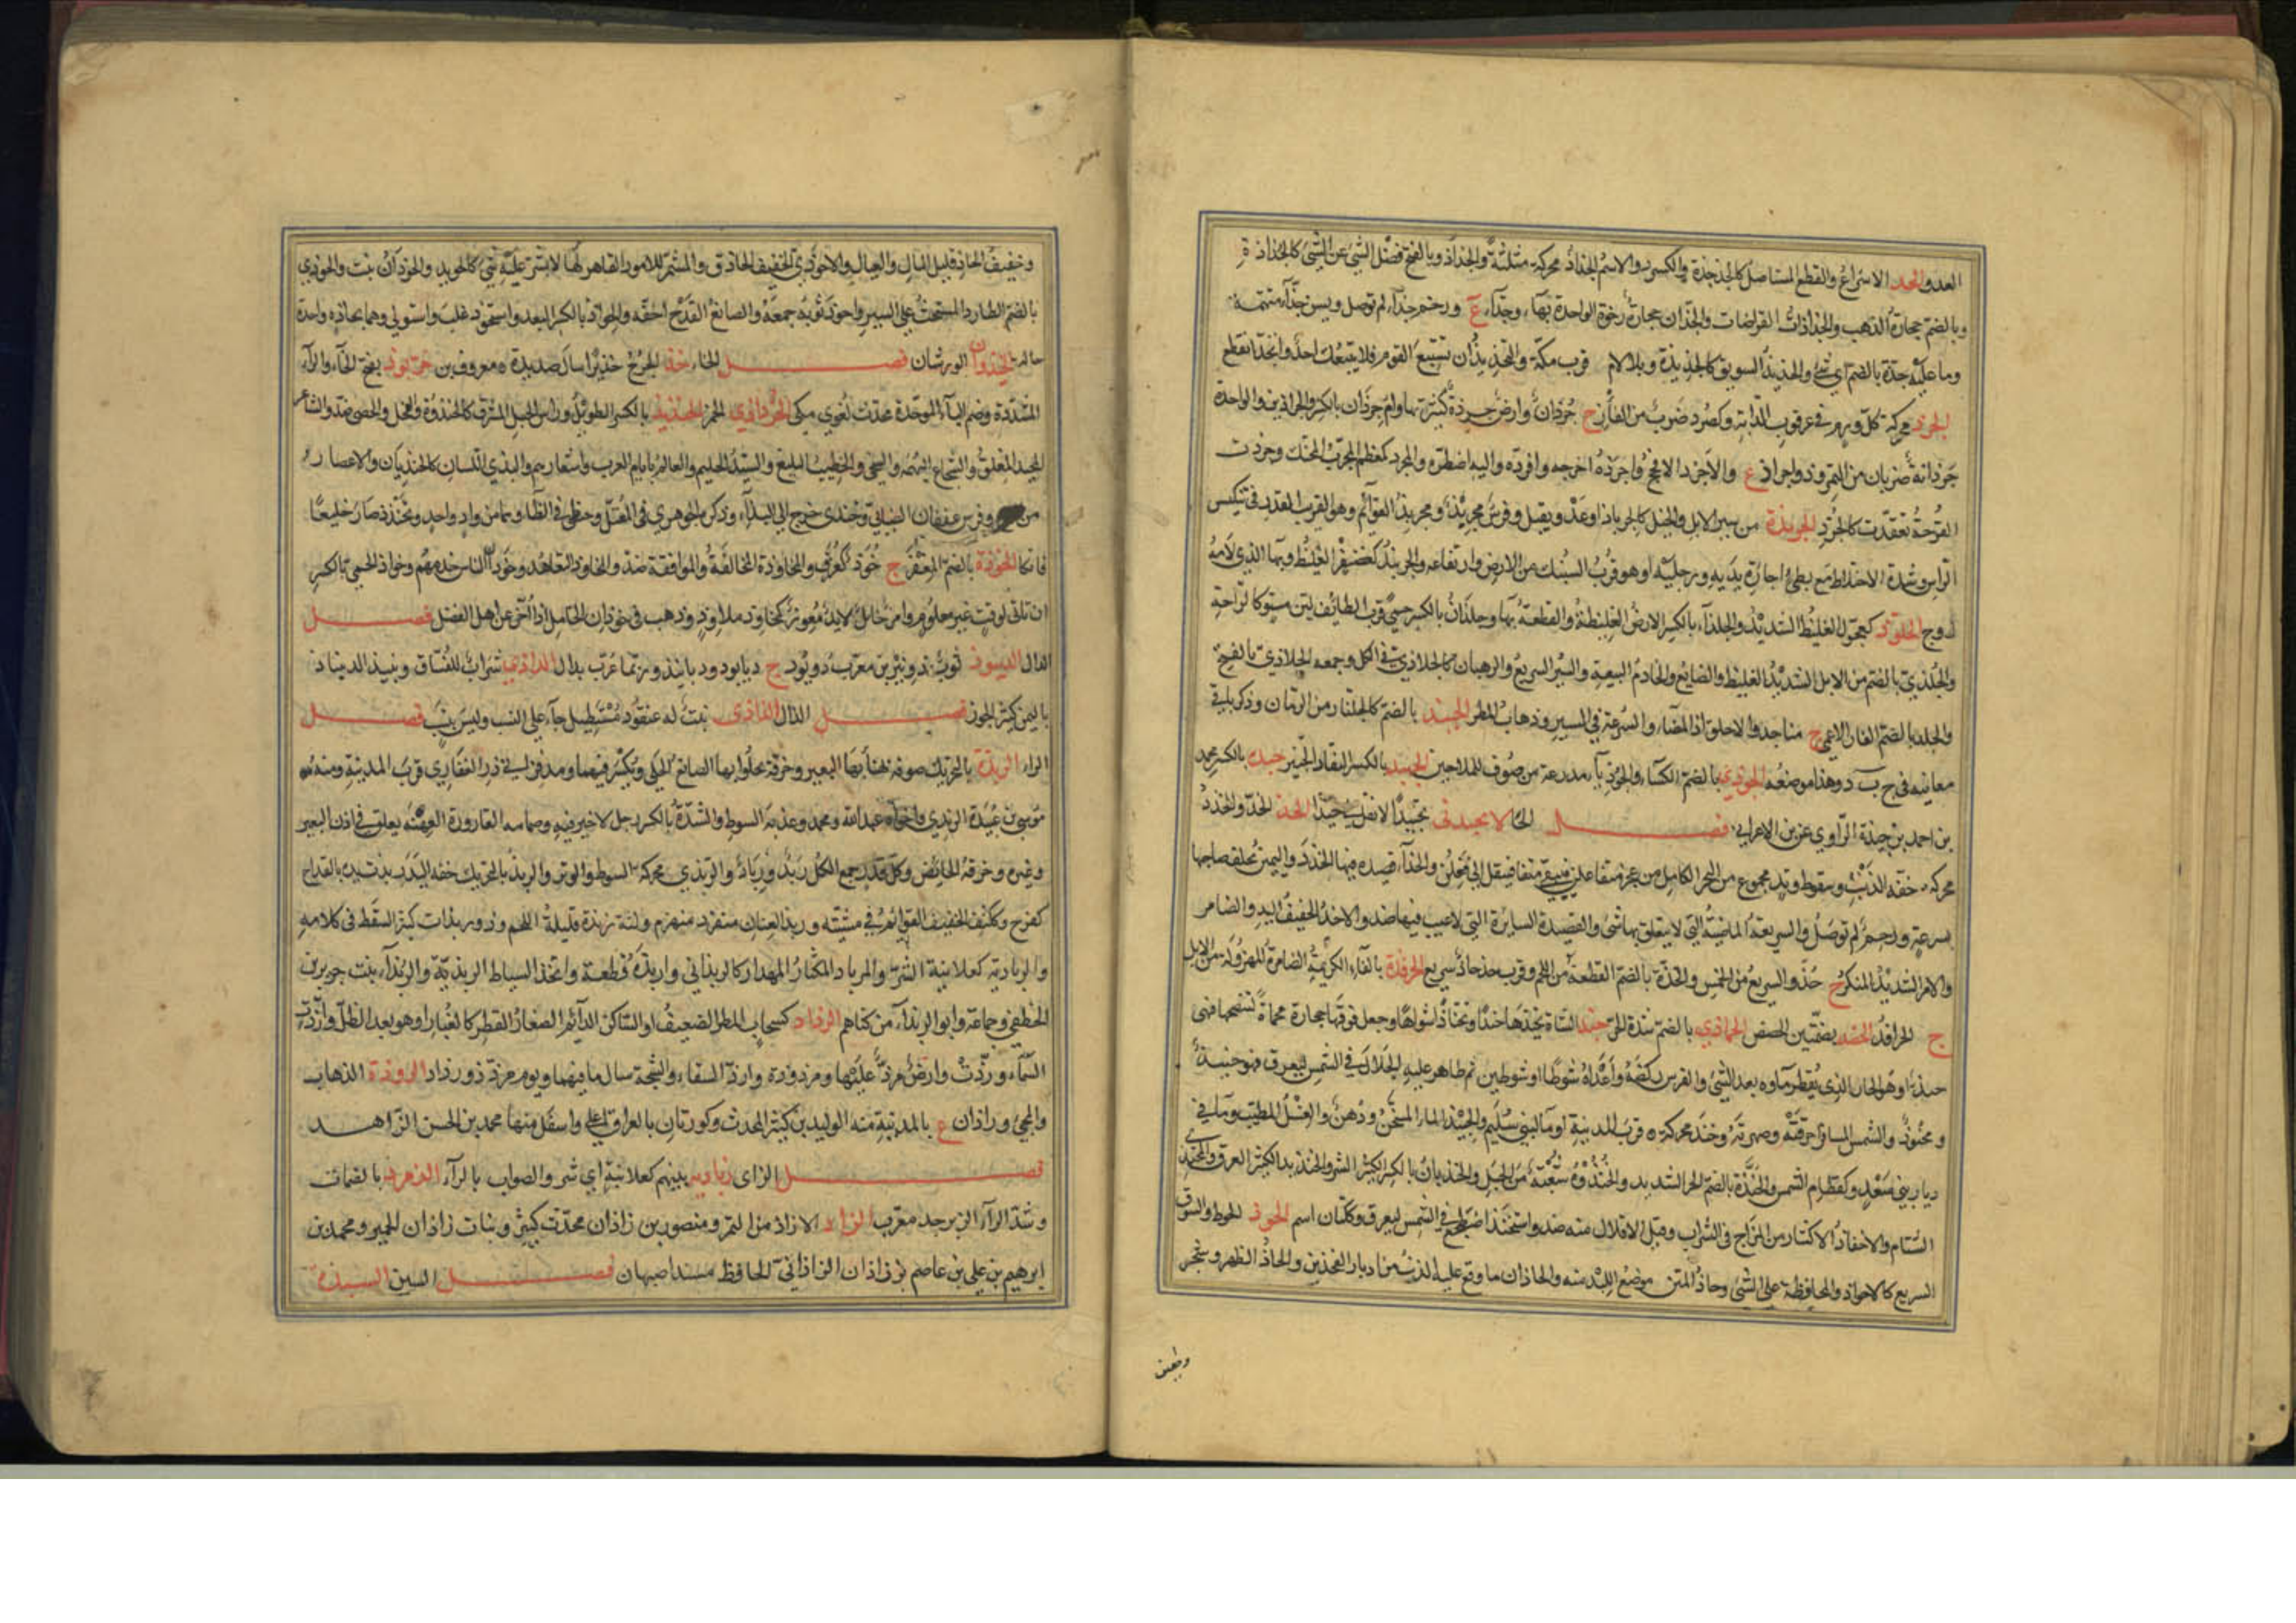 العدو والجذ الاسراع والقطع المستاصل كالجذجذة والكسر والاسم الجذاذ محركة مثلثة والجذاذ وبالفتح فضل الشئ عن الشئ كالجذاذة
وبالضم حجارة الذهب والجذاذات القراضات والجذان حجارة رخوة الواحدة بهاء وجذاء ع ورحم جذاء لم توصل وسن جذاء متهتمة
وما عليه جذة بالضم اي شئ والجذيذ السويق كالجذيذة وبلا لام قرب مكة والتجذيذ ان تستتبع القوم فلا يتبعك احد وانجذ انقطع
الجرذ محركة كل ورم في عرقوب الدابة وكصرد ضرب من الفار ج جرذان وارض جرذة كثيرتها وام جرذان بالكسر والجراذين والواحدة
جرذانة ضربان من التمر وذو اجراذ ع والاجرذ الافحج واجرذه اخرجه وافرده واليه اضطره والمجرذ كمعظم المجرب المحنك وجرذت
القرحة تعقدت كالجرذ الجربذة من سير الابل والخيل كالجرباذ او عدو ثقيل وفرس مجربذ ومجربذ القوائم وهو القريب القدر في تنكيس
الراس وشدة الاختلاط مع بطئ اجارة يديه ورجليه او هو قرب السنبك من الارض وارتفاعه والجربذ كغضنفر الغليظ وبهاء الذي لامه
زوج الجلوذ كعجول الغليظ الشديد والجلذاء بالكسر الارض الغليظة والقطعة بهاء وجلذان بالكسر حمى قرب الطائف لين مستو كالراحة
والجلذي بالضم من الابل الشديد الغليظ والصانع والخادم البيعة والسير السريع والرهبان كالجلاذي في الكل وجمعه الجلاذي بالفتح
والجلذ بالضم الفار الاعمى ج مناجذ والاجلواذ المضاء والسرعة في السير وذهاب المطر الجنبذ بالضم كالجلنار من الرمان وذكر باقي
معانيه في ج ب ذ وهذا موضعه الجوذي بالضم الكساء والجوذياء مدرعة من صوف للملاحين الجهبذ بالكسر النقاد الخبير جيذة بالكسر محمد
بن احمد بن جيذة الراوي عن بن الاعرابي فصل الحاء لا تحبذني تحبيذا لا تقل لي حبذا الحذ الجذ والحذذ
محركة خفة الذنب وسقوط وتد مجموع من البحر الكامل من عجز متفاعلن فيبقى متفا فينقل الى فعلن والحذاء قصيدة فيها الحذذ واليمين يحلف صاحبها
بسرعة ورحم لم توصل والسريعة الماضية التي لا يتعلق بها شئ والقصيدة السائرة التي لا عيب فيها ضد والاحذ الخفيف اليد والضامر
والامر الشديد المنكر ج حذ والسريع من الخمس والحذة بالضم القطعة من اللحم وقرب حذحاذ سريع الحرفذة بالفاء الكريمة الضامرة المهزولة من الابل
ج الحرافذ الحضذ بضمتين الحضض الحماذي بالضم شدة الحر حنذ الشاة يحنذها حنذا وتحناذا شواها وجعل فوقها حجارة محماة لتنضجها فهي
حنيذ او هو الحار الذي يقطر ماؤه بعد الشئ والفرس ركضه واعداه شوطا او شوطين ثم ظاهر عليه الجلال في الشمس ليعرق فهو حنيذ
ومحنوذ والشمس المسافر احرقته وصهرته وحنذ محركة ة قرب المدينة او ماء لبني سليم والحنيذ الماء المسخن ودهن والغسل المطيب وماء في
ديار بني سعد وكقطام الشمس والحنذة بالضم الحر الشديد والحنذوة شعبة من الجبل والحنذيان بالكسر الكثير الشر والحنذيذ الكثير العرق والحنذ
الشتام والاحناذ الاكثار من المزاج في الشراب وقيل الاقلال منه ضد واستحنذ اضطجع في الشمس ليعرق وكتان اسم الحوذ الحوط والسوق
السريع كالاحواذ والمحافظة على الشئ وحاذ المتن موضع اللبد منه والحاذان ما وقع عليه الذنب من ادبار الفخذين والحاذ الظهر وشجر
وخفيف
وخفيف الحاذ قليل المال والعيال والاحوذي الخفيف الحاذق والمشمر للامور القاهر لها لا يشذ عليه شئ كالحويذ والحوذان نبت والحوذي
بالضم الطارد المستحث على السير واحوذ ثوبه جمعه والصانع القدح اخفه والحواذ بالكسر البعد واستحوذ غلب واستولى وهما بحاذة واحدة
حالة الحيذوان الورشان فصل الخاء خذ الجرح خذيذا سال صديده معروف بن خربوذ بفتح الخاء والراء
المشددة وضم الباء الموحدة محدث لغوي مكي الخرداذي الخمر الخنذيذ بالكسر الطويل وراس الجبل المشرف كالخنذوة والفحل والخصي ضد والشاعر
المجيد المفلق والشجاع البهمة والسخي والخطيب البليغ والسيد الحليم والعالم بايام العرب واشعارهم والبذي اللسان كالخنذيان والاعصار
من وفرس عقفان الضبابي وخنذى خرج الى البذاء وذكر الجوهري في المعتل وخنظى في الظاء وهما من واد واحد وتخنذذ صار خليعا
فاتكا الخوذة بالضم المغفر ج خوذ كغرف والمخاوذة المخالفة والموافقة ضد والتخاوذ التعاهد وخوذان الناس خدمهم وخواذ الحمى بالكسر
ان تاتي لوقت غير معلوم وامر خائذ لائذ معوز كمخاوذ ملاوذ وذهب في خوذان الخامل اذا اخر عن اهل الفضل فصل
الدال الديبوذ ثوب ذو نيرين معرب دوبود ج ديابود وديابيذ وربما عرب بدال الداذي شراب للفساق ونبيذ الديناد
باليمن كثير الجوز فصل الذال الذاذي نبت له عنقود مستطيل جاء على النسب وليس بنسب فصل
الراء الربذة بالتحريك صوفة يهنا بها البعير وخرقة يجلو بها الصانع الحلي ويكسر فيهما ومدفن ابي ذر الغفاري قرب المدينة ومنه
موسى بن عبيدة الربذي واخواه عبد الله ومحمد وعذبة السوط والشدة بالكسر رجل لا خير فيه وصمامة القارورة العهنة يعلق في اذن البعير
وغيره وخرقة الحائض وكل قذر جمع الكل ربذ ورباذ والربذي محركة السوط والوتر والربذ بالتحريك خفة اليد ربذت يده بالقداح
كفرح وككتف الخفيف القوائم في مشيته وربذ العنان منفرد منهزم ولثة ربذة قليلة اللحم وذو ربذات كثير السقط في كلامه
والرباذية كعلانية الشر والمرباذ المكثار المهذار كالربذاني واربذه قطعه واتخذ السياط الربذية والربذاء بنت جرير بن
الخطفى وجماعة وابو الربذاء من كناهم الرذاذ كسحاب المطر الضعيف او الساكن الدائم الصغار القطر كالغبار او هو بعد الطل وارذت
السماء ورذت وارض مرذ عليها ومرذوذة وارذ السقاء والشجة سال ما فيهما ويوم مرذ ذو رذاذ الروذة الذهاب
والمجئ وراذان ع بالمدينة منه الوليد بن كثير المحدث وكورتان بالعراق اعلى واسفل منها محمد بن الحسن الزاهد
فصل الزاى زباذية بينهم كعلانية اي شر والصواب بالراء الزمرذ بالضمات
وشد الراء الزبرجد معرب الزاذ الازاذ من التمر ومنصور بن زاذان محدث كبير وبنات زاذان الحمير ومحمد بن
ابرهيم بن علي بن عاصم بن زاذان الزاذاني الحافظ مسند اصبهان فصل السين السبذة